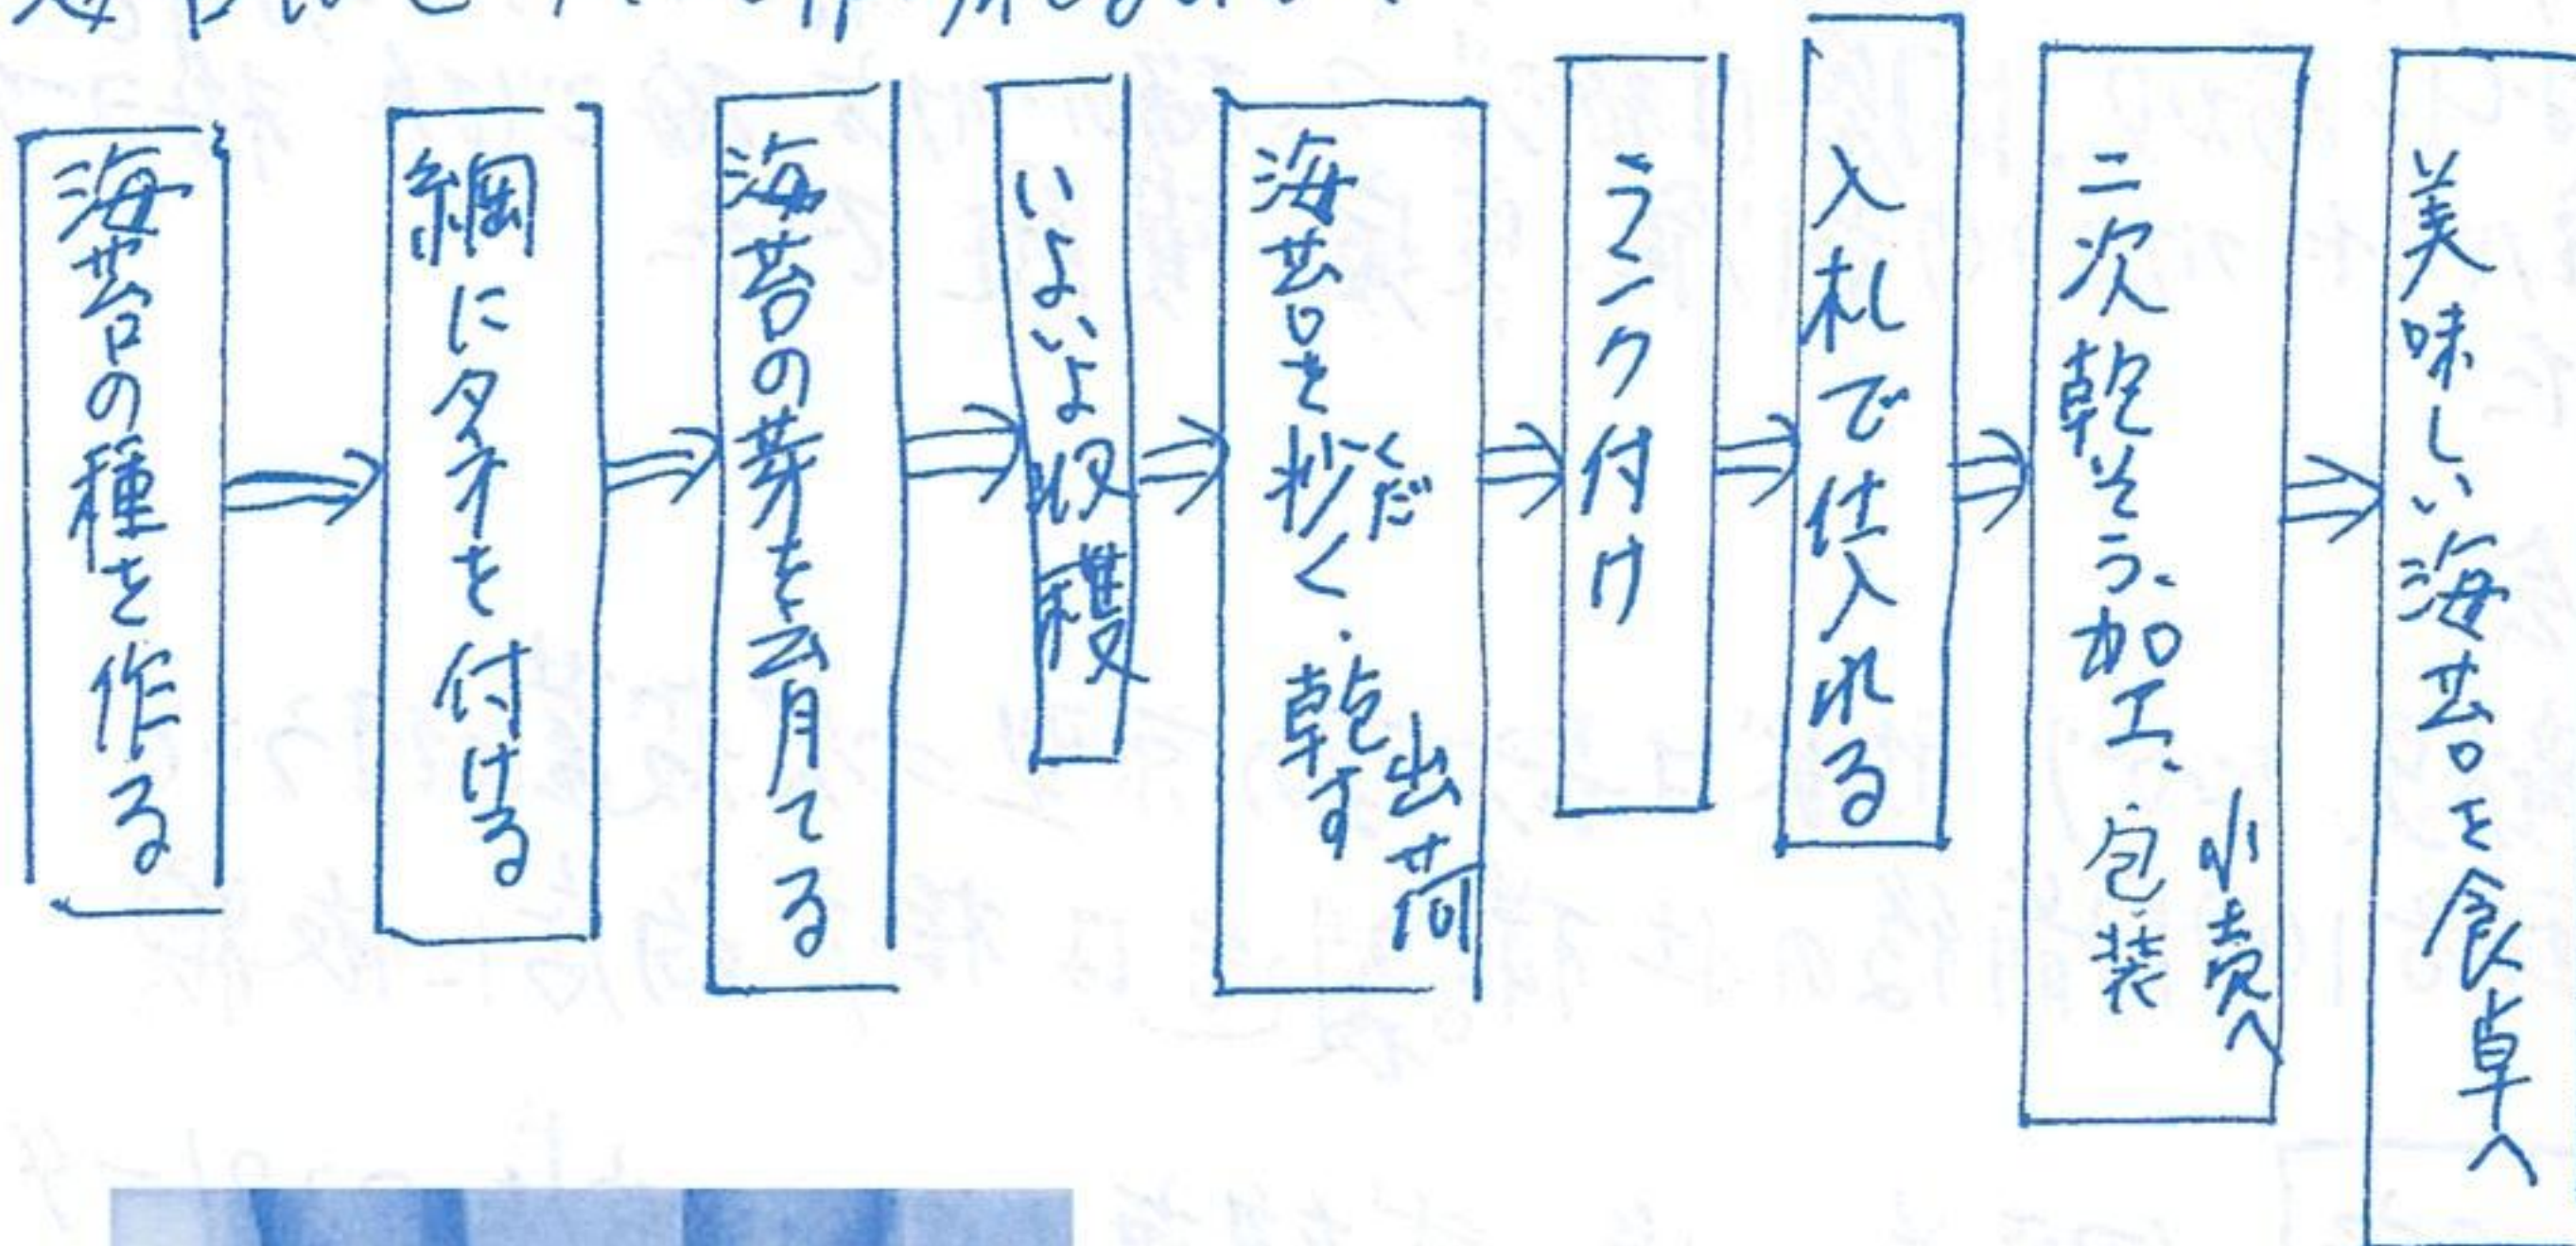 海苔の種を作る
綱にタネを付ける
海苔の芽を育てる
いよいよ収穫
海苔を抄く・乾す
くだ
出荷
ランク付け
入札で仕入れる
二次乾そう、加工、包装
小売へ
美味しい海苔を食卓へ